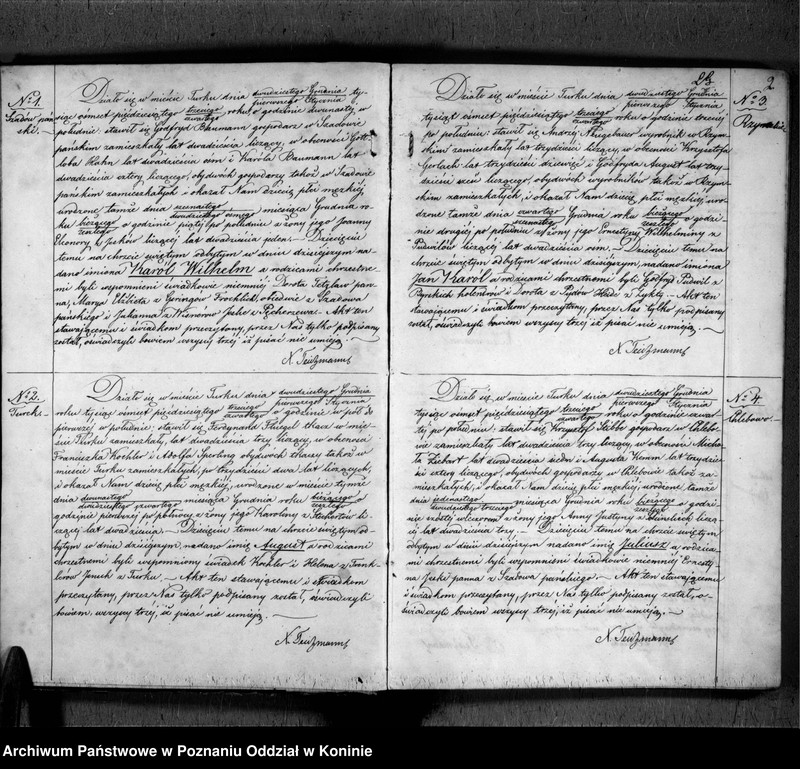 No 1.
Szadów pań
ski.
Działo się w mieście Turku dnia dwudziestego Grudnia / pierwszego Stycznia ty-
siąc ośmset pięćdziesiątego trzeciego / czwartego roku, o godzinie dwunastej w
południe stawił się Godfryd Baumann gospodarz w Szadowie
pańskim zamieszkały lat dwadzieścia liczący, w obecności Gott-
loba Hahn lat dwadzieścia ośm i Karola Baumann lat
dwadzieścia cztery liczącego, obydwóch gospodarzy także w Szadowie
pańskim zamieszkałych i okazał Nam dziecię płci męzkiej,
urodzone tamże dnia szesnastego / dwudziestego ósmego miesiąca Grudnia ro-
ku bieżącego / zeszłego o godzinie piątej po południu z żony jego Joanny
Eleonory z liczącej lat dwadzieścia jeden. — Dziecięciu
temu na chrzcie świętym odbytym w dniu dzisiejszym na-
dano imiona Karól Wilhelm a rodzicami chrzestne-
mi byli wspomnieni świadkowie niemniej: Dorota pan-
na, Marya Elżbieta z Frochlich, obiedwie z Szadowa
pańskiego i Johanna z z . Akt ten
stawającemu i świadkom przeczytany, przez Nas tylko podpisany
został, oświadczyli bowiem wszyscy trzej iż pisać nie umieją. —
N. Teutzmann
No 2.
Turek.
Działo się w mieście Turku dnia dwudziestego Grudnia / pierwszego Stycznia
roku tysiąc ośmset pięćdziesiątego trzeciego / czwartego o godzinie w pół do
pierwszej w południe: stawił się Ferdynand Fliegel tkacz w mie-
ście Turku zamieszkały, lat dwadzieścia trzy liczący, w obecności
Franciszka Koehler i Adolfa Sperling obydwóch tkaczy także w
mieście Turku zamieszkałych, po trzydzieści dwa lat liczących,
i okazał Nam dziecię płci męzkiej, urodzone w mieście tymże
dnia dwunastego / dwudziestego czwartego miesiąca Grudnia roku bieżącego / zeszłego o
godzinie pierwszej po północy z żony jego Karoliny z li-
czącej lat dwadzieścia. — Dziecięciu temu na chrzcie świętym od-
bytym w dniu dzisiejszym, nadano imię August a rodzicami
chrzestnemi byli wspomniony świadek Koehler i Helena z
Jensch z Turku. — Akt ten stawającemu i świadkom
przeczytany, przez Nas tylko podpisany został, oświadczyli
bowiem, wszyscy trzej, iż pisać nie umieją. —
N. Teutzmann
2
No 3
Działo się w mieście Turku dnia dwudziestego Grudnia / pierwszego Stycznia
tysiąc ośmset pięćdziesiątego trzeciego / czwartego roku o godzinie trzeciej
po południu: stawił się Andrzej Neugebauer wyrobnik w Rzym-
skim zamieszkały lat trzydzieści liczący, w obecności Krzysztofa
Gerlach lat trzydzieści dziewięć i Godfryda August lat trzy-
dzieści sześć liczącego, obydwóch wyrobników także w Rzym-
skim zamieszkałych i okazał Nam dziecię płci męzkiej uro-
dzone tamże dnia czwartego / szesnastego Grudnia roku bieżącego / zeszłego o godzi-
nie drugiej po południu z żony jego Ernestyny Wilhelminy z
liczącej lat dwadzieścia ośm. — Dziecięciu temu na
chrzcie świętym odbytym w dniu dzisiejszym, nadano imiona
Jan Karol a rodzicami chrzestnemi byli Godfryd z
i Dorota z z . — Akt ten
stawającemu i świadkom przeczytany, przez Nas tylko podpisany
został, oświadczyli bowiem wszyscy trzej iż pisać nie umieją. —
N. Teutzmann
No 4.
Działo się w mieście Turku dnia dwudziestego Grudnia / pierwszego Stycznia
tysiąc ośmset pięćdziesiątego trzeciego / czwartego roku o godzinie czwar-
tej po południu: stawił się Krzysztof gospodarz w
zamieszkały lat dwadzieścia trzy liczący, w obecności Micha-
ła lat dwadzieścia siedm i Augusta lat trzydzie-
ści cztery liczącego, obydwóch gospodarzy w także za-
mieszkałych, i okazał Nam dziecię płci męzkiej, urodzone tamże
dnia jedenastego / dwudziestego trzeciego miesiąca Grudnia roku bieżącego / zeszłego o godzi-
nie szóstej wieczorem z żony jego Anny Justyny z liczą-
cej lat dwadzieścia trzy. — Dziecięciu temu na chrzcie świętym
odbytym w dniu dzisiejszym nadano imię Juliusz a rodzica-
mi chrzestnemi byli wspomnieni świadkowie niemniej Ernesty-
na Jeske panna z Szadowa pańskiego. — Akt ten stawającemu
i świadkom przeczytany, przez Nas tylko podpisany został, o-
świadczyli bowiem wszyscy trzej, iż pisać nie umieją. —
N. Teutzmann
Archiwum Państwowe w Poznaniu Oddział w Koninie